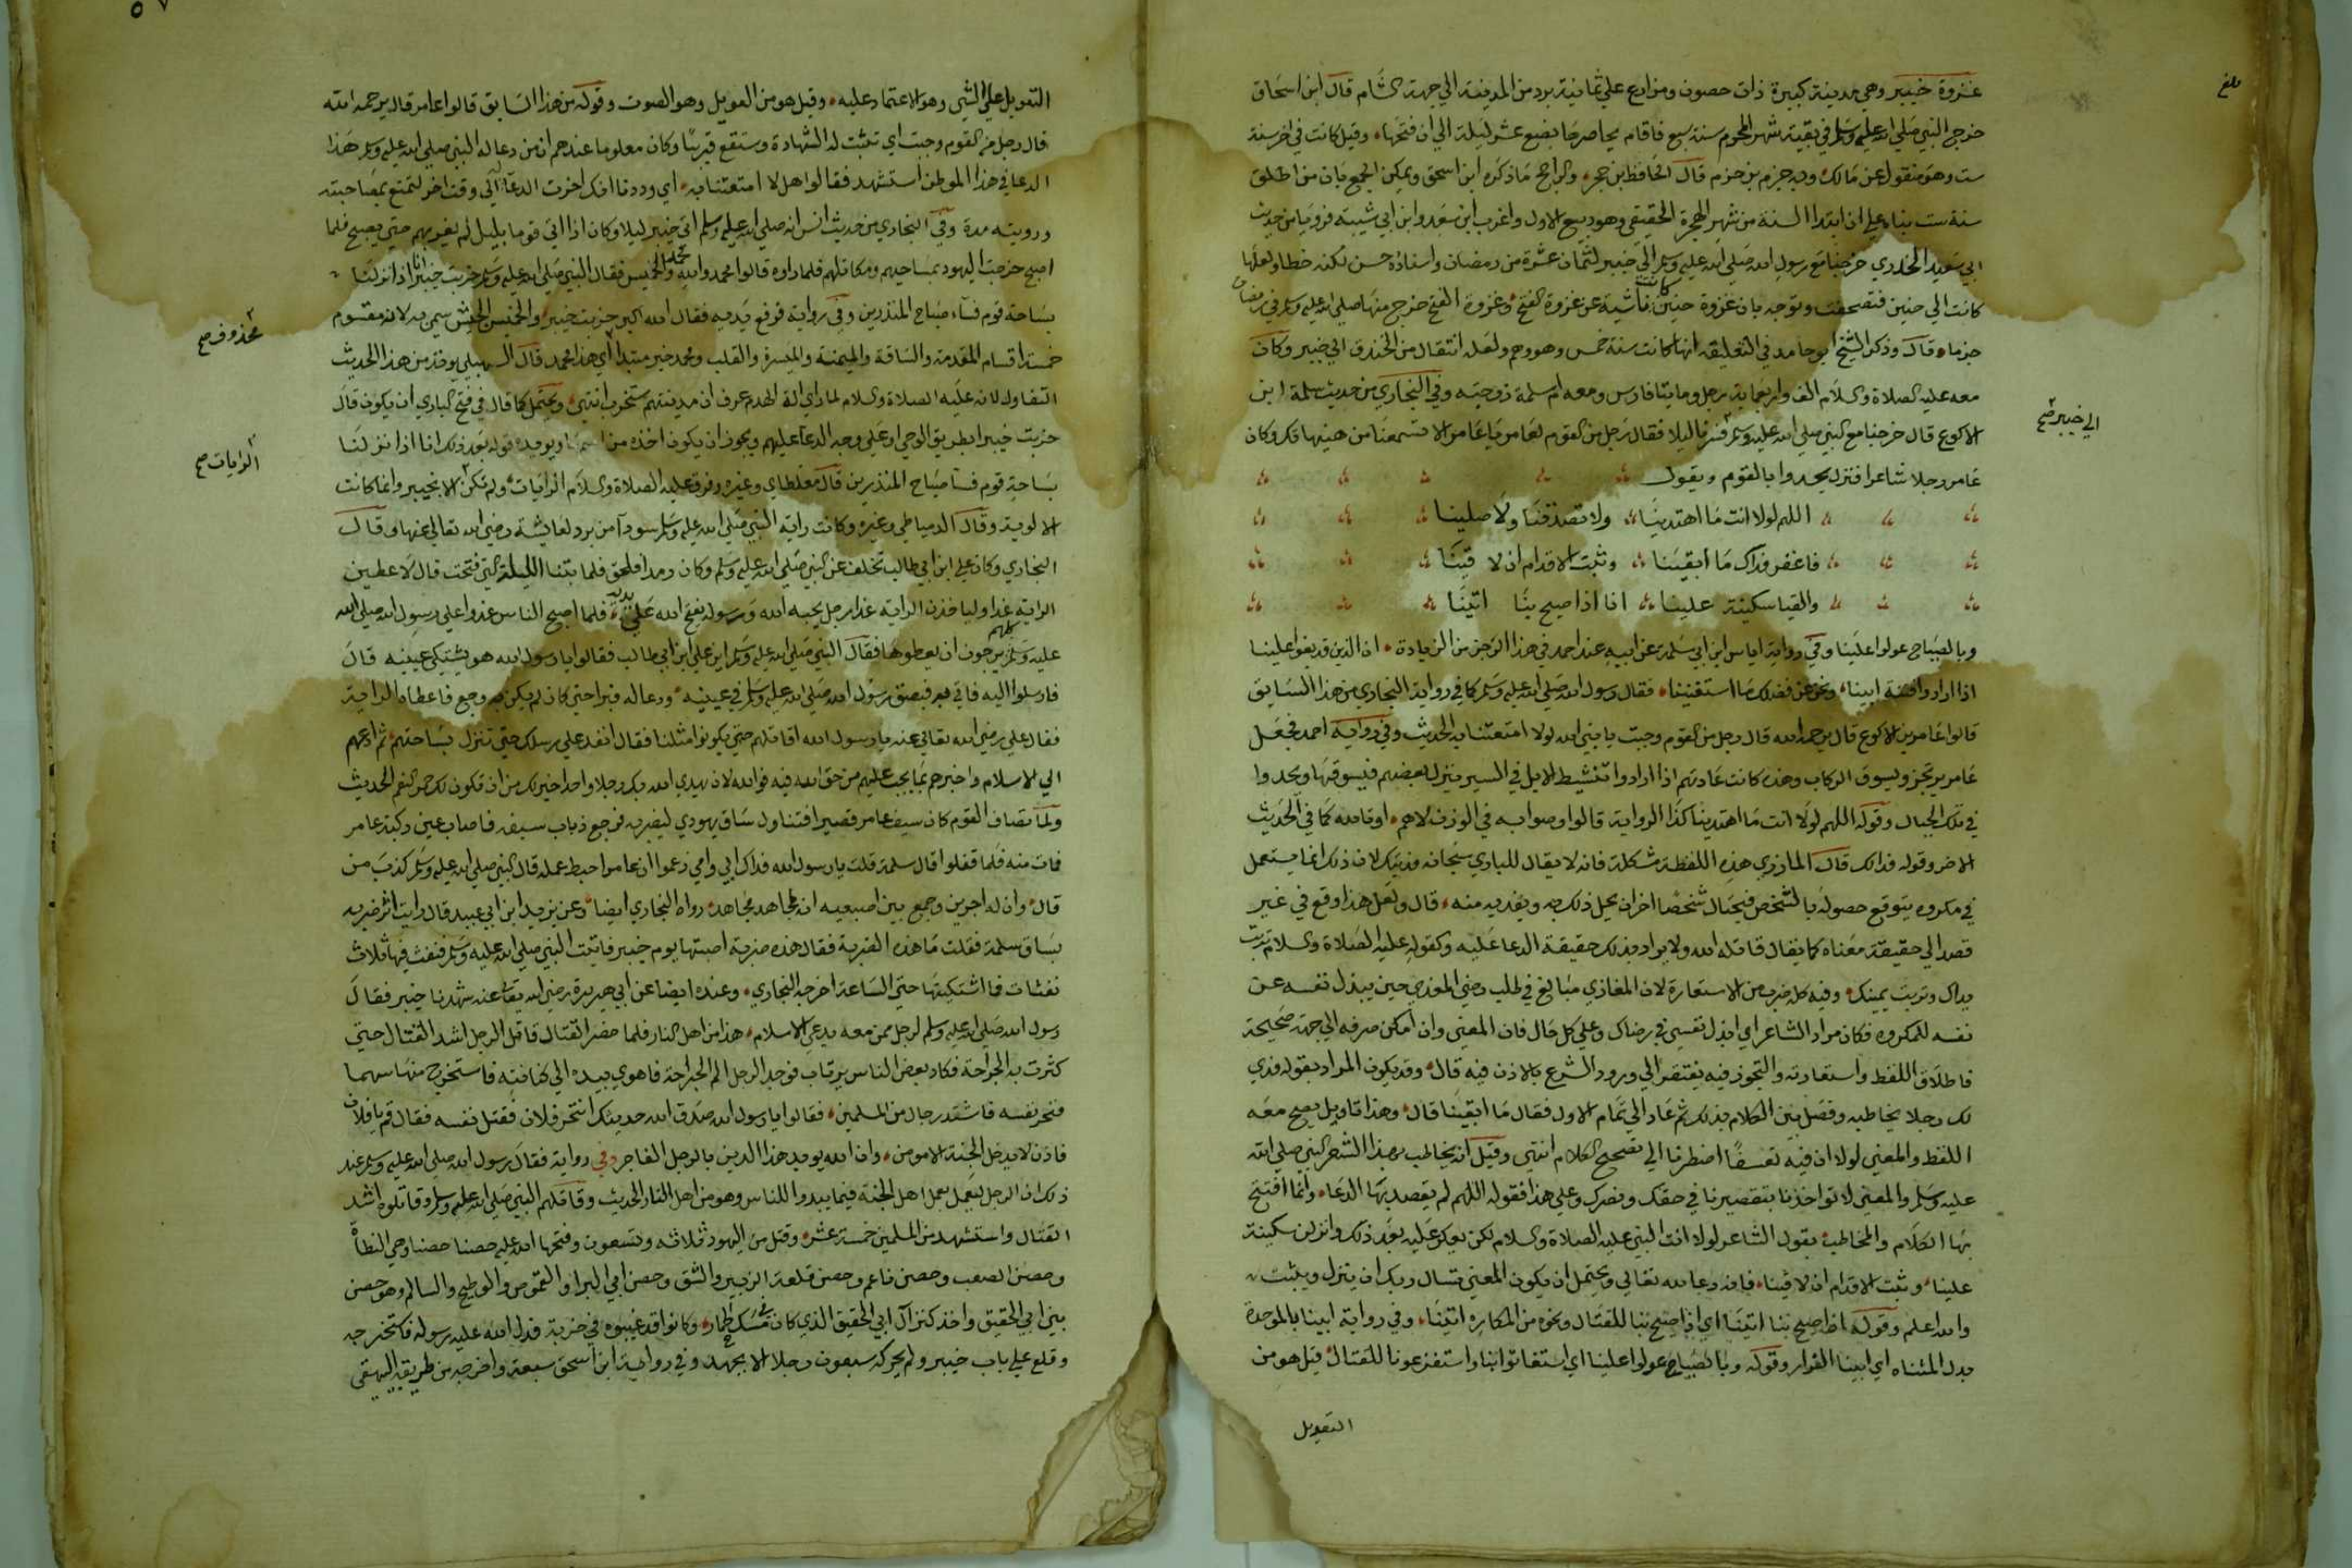 غزوة خيبر وهي مدينة كبيرة ذات حصون ومزارع على ثمانية برد من المدينة الي جهة الشام قال ابن اسحاق
خرج النبي صلي الله عليه وسلم في بقية شهر المحرم سنة سبع فاقام يحاصرها بضع عشر ليلة الي ان فتحها وقيل كانت في اخر سنة
ست وهو منقول عن مالك وبه جزم بن حزم قال الحافظ بن حجر والراجح ما ذكره ابن اسحق ويمكن الجمع بان من اطلق
سنة ست بناه علي ان ابتدا السنة من شهر الهجرة الحقيقي وهو ربيع الاول واغرب ابن سعد وابن ابي شيبة فرويا من حديث
ابي سعيد الخدري خرجنا مع رسول الله صلي الله عليه وسلم الي خيبر لثمان عشرة من رمضان واسناده حسن لكنه خطا ولعلها
كانت الي حنين فتصحفت وتوجه بان غزوة حنين كانت ناشية عن غزوة الفتح وغزوة الفتح خرج منها صلي الله عليه وسلم في رمضان
جزما وقال وذكر الشيخ ابو حامد في التعليقة انها كانت سنة خمس وهو وهم ولعله انتقال من الخندق الي خيبر وكان
معه عليه الصلاة والسلام الف واربعماية رجل ومايتا فارس ومعه ام سلمة زوجته وفي البخاري من حديث سلمة ابن
الاكوع قال خرجنا مع النبي صلي الله عليه وسلم فسرنا ليلا فقال رجل من القوم لعامر يا عامر الا تسمعنا من هنيهاتك وكان
الي خيبر صح
عامر رجلا شاعرا فنزل يحدوا بالقوم ويقول
اللهم لولا انت ما اهتدينا ولا تصدقنا ولا صلينا
فاغفر فداك ما ابقينا وثبت الاقدام ان لا قينا
والقيا سكينة علينا انا اذا صيح بنا اتينا
وبالصياح عولوا علينا وفي رواية اياس ابن ابي سلمة عن ابيه عند احمد في هذا الرجز من الزيادة ان الذين قد بغوا علينا
اذا ارادوا فتنة ابينا ونحن عن فضلك ما استغنينا فقال رسول الله صلي الله عليه وسلم كما في رواية البخاري من هذا السايق
قالوا عامر بن الاكوع قال يرحمه الله قال رجل من القوم وجبت يا نبي الله لولا امتعتنا به الحديث وفي رواية احمد فجعل
عامر يرتجز ويسوق الركاب وهذه كانت عادتهم اذا ارادوا تنشيط الابل في السير ينزل بعضهم فيسوقها ويحدوا
في تلك الحال وقوله اللهم لولا انت ما اهتدينا كذا الرواية قالوا وصوابه في الوزن لاهم او تالله كما في الحديث
الاخر وقوله فدا لك قال المازري هذه اللفظة مشكلة فانه لا يقال للباري سبحانه فديتك لان ذلك انما يستعمل
في مكروه يتوقع حصوله بالشخص فيختار شخصا اخر ان يحل ذلك به ويفديه منه قال ولعل هذا وقع في غير
قصد الي حقيقة معناه كما يقال قاتله الله ولا يراد بذلك حقيقة الدعا عليه وكقوله عليه الصلاة والسلام تربت
يداك وتربت يمينك وفيه كله ضرب من الاستعارة لان المفادي مبالغ في طلب رضي المفدي حين يبذل نفسه عن
نفسه للمكروه فكان مراد الشاعر اي ابذل نفسي في رضاك وعلي كل حال فان المعني وان امكن صرفه الي جهة صحيحة
فاطلاق اللفظ واستعارته والتجوز فيه يفتقر الي ورود الشرع بالاذن فيه قال وقد يكون المراد بقوله فدي
لك رجلا يخاطبه وفصل بين الكلام بذلك ثم عاد الي تمام الاول فقال ما ابقينا قال وهذا تاويل يصح معه
اللفظ والمعني لولا ان فيه تعسفا اضطرنا الي تصحيح الكلام انتهي وقيل انه يخاطب بهذا الشعر النبي صلي الله
عليه وسلم والمعني لا تواخذنا بتقصيرنا في حقك ونصرك وعلي هذا فقوله اللهم لم يقصد بها الدعا وانما افتتح
بها الكلام والمخاطب بقول الشاعر لولا انت النبي عليه الصلاة والسلام لكن يعكر عليه بعد ذلك وانزلن سكينة
علينا وثبت الاقدام ان لا قينا فانه دعا لله تعالي ويحتمل ان يكون المعني تسال ربك ان ينزل ويثبت
والله اعلم وقوله اذا صيح بنا اتينا اي اذا صيح بنا للقتال ونحوه من المكاره اتينا وفي رواية ابينا بالموحدة
بدل المثناه اي ابينا الفرار وقوله وبالصياح عولوا علينا اي استغاثوا بنا واستفزعونا للقتال قيل هو من
التعويل
التعويل علي الشي وهو الاعتماد عليه وقيل هو من العويل وهو الصوت وقوله من هذا السايق قالوا عامر قال يرحمه الله
قال رجل من القوم وجبت اي تثبت له الشهادة وستقع قريبا وكان معلوما عندهم ان من دعا له النبي صلي الله عليه وسلم هذا
الدعا في هذا الموطن استشهد فقالوا هل لا امتعتنا به اي وددنا انك اخرت الدعا الي وقت اخر لنتمتع بمصاحبته
ورويته مدة وفي البخاري من حديث انس انه صلي الله عليه وسلم اتي خيبر ليلا وكان اذا اتي قوما بليل لم يغربهم حتي يصبح فلما
اصبح خرجت اليهود بمساحيهم ومكاتلهم فلما راوه قالوا محمد والله محمد والخميس فقال النبي صلي الله عليه وسلم خربت خيبر انا اذا نزلنا
بساحة قوم فساء صباح المنذرين وفي رواية فرفع يديه فقال الله اكبر خربت خيبر والخميس الجيش سمي به لانه مقسوم
محذوف صح
خمسة اقسام المقدمة والساقة والميمنة والميسرة والقلب ومحمد خبر مبتدا اي هذا محمد قال السهيلي يوخذ من هذا الحديث
التفاول لانه عليه الصلاة والسلام لما راي الة الهدم عرف ان مدينتهم ستخرب انتهي ويحتمل كما قال في فتح الباري ان يكون قال
خربت خيبر بطريق الوحي او علي وجه الدعا عليهم ويجوز ان يكون اخذه من اسمها ويويده قوله بعد ذلك انا اذا نزلنا
الرايات صح
بساحة قوم فسا صباح المنذرين قال مغلطاي وغيره وفرق عليه الصلاة والسلام الرايات ولم تكن الا بخيبر وانما كانت
الالوية وقال الدمياطي وغيره وكانت راية النبي صلي الله عليه وسلم سودآ من برد لعايشة رضي الله تعالي عنها وقال
البخاري وكان علي ابن ابي طالب تخلف عن النبي صلي الله عليه وسلم وكان رمدا فلحق فلما بتنا الليلة التي فتحت قال لاعطين
الراية غدا او لياخذن الراية غدا رجل يحبه الله ورسوله يفتح الله علي يديه فلما اصبح الناس غدوا علي رسول الله صلي الله
عليه وسلم كلهم يرجون ان يعطوها فقال النبي صلي الله عليه وسلم اين علي ابن ابي طالب فقالوا يا رسول الله هو يشتكي عينيه قال
فارسلوا اليه فاتي به فبصق رسول الله صلي الله عليه وسلم في عينيه ودعا له فبرا حتي كان لم يكن به وجع فاعطاه الراية
فقال علي رضي الله تعالي عنه يا رسول الله اقاتلهم حتي يكونوا مثلنا فقال انفذ علي رسلك حتي تنزل بساحتهم ثم ادعهم
الي الاسلام واخبرهم بما يجب عليهم من حق الله فيه فوالله لان يهدي الله بك رجلا واحدا خير لك من ان تكون لك حمر النعم الحديث
ولما تصاف القوم كان سيف عامر قصيرا فتناول ساق يهودي ليضربه فرجع ذباب سيفه فاصاب عين ركبة عامر
فمات منه فلما قفلوا قال سلمة قلت يا رسول الله فداك ابي وامي زعموا ان عامرا حبط عمله قال النبي صلي الله عليه وسلم كذب من
قال وان له اجرين وجمع بين اصبعيه انه لجاهد مجاهد رواه البخاري ايضا وعن يزيد ابن ابي عبيد قال رايت اثر ضربة
بساق سلمة فقلت ما هذه الضربة فقال هذه ضربة اصبتها يوم خيبر فاتيت النبي صلي الله عليه وسلم فنفث فيها ثلاث
نفثات فما اشتكيتها حتي الساعة اخرجه البخاري وعنده ايضا عن ابي هريرة رضي الله تعالي عنه شهدنا خيبر فقال
رسول الله صلي الله عليه وسلم لرجل ممن معه يدعي الاسلام هذا من اهل النار فلما حضر القتال قاتل الرجل اشد القتال حتي
كثرت به الجراحة فكاد بعض الناس يرتاب فوجد الرجل الم الجراحة فاهوي بيده الي كنانته فاستخرج منها سهما
فنحر نفسه فاشتد رجال من المسلمين فقالوا يا رسول الله صدق الله حديثك انتحر فلان فقتل نفسه فقال قم يا فلان
فاذن لا يدخل الجنة الا مومن وان الله يويد هذا الدين بالرجل الفاجر وفي رواية فقال رسول الله صلي الله عليه وسلم عند
ذلك ان الرجل ليعمل بعمل اهل الجنة فيما يبدوا للناس وهو من اهل النار الحديث وقاتلهم النبي صلي الله عليه وسلم وقاتلوه اشد
القتال واستشهد من المسلمين خمسة عشر وقتل من اليهود ثلاثه وتسعون وفتحها الله عليه حصنا حصنا وهي النطاة
وحصن الصعب وحصن ناعم وحصن قلعة الزبير والشق وحصن ابي البرا والقموص والوطيح والسالم وهو حصن
بني ابي الحقيق واخذ كنز آل ابي الحقيق الذي كان في مسك الحمار وكانوا قد غيبوه في خربة فدل الله عليه رسوله فاستخرجه
وقلع علي باب خيبر ولم يحركه سبعون رجلا الا بجهد وفي رواية ابن اسحق سبعة واخرجه من طريقه البيهقي